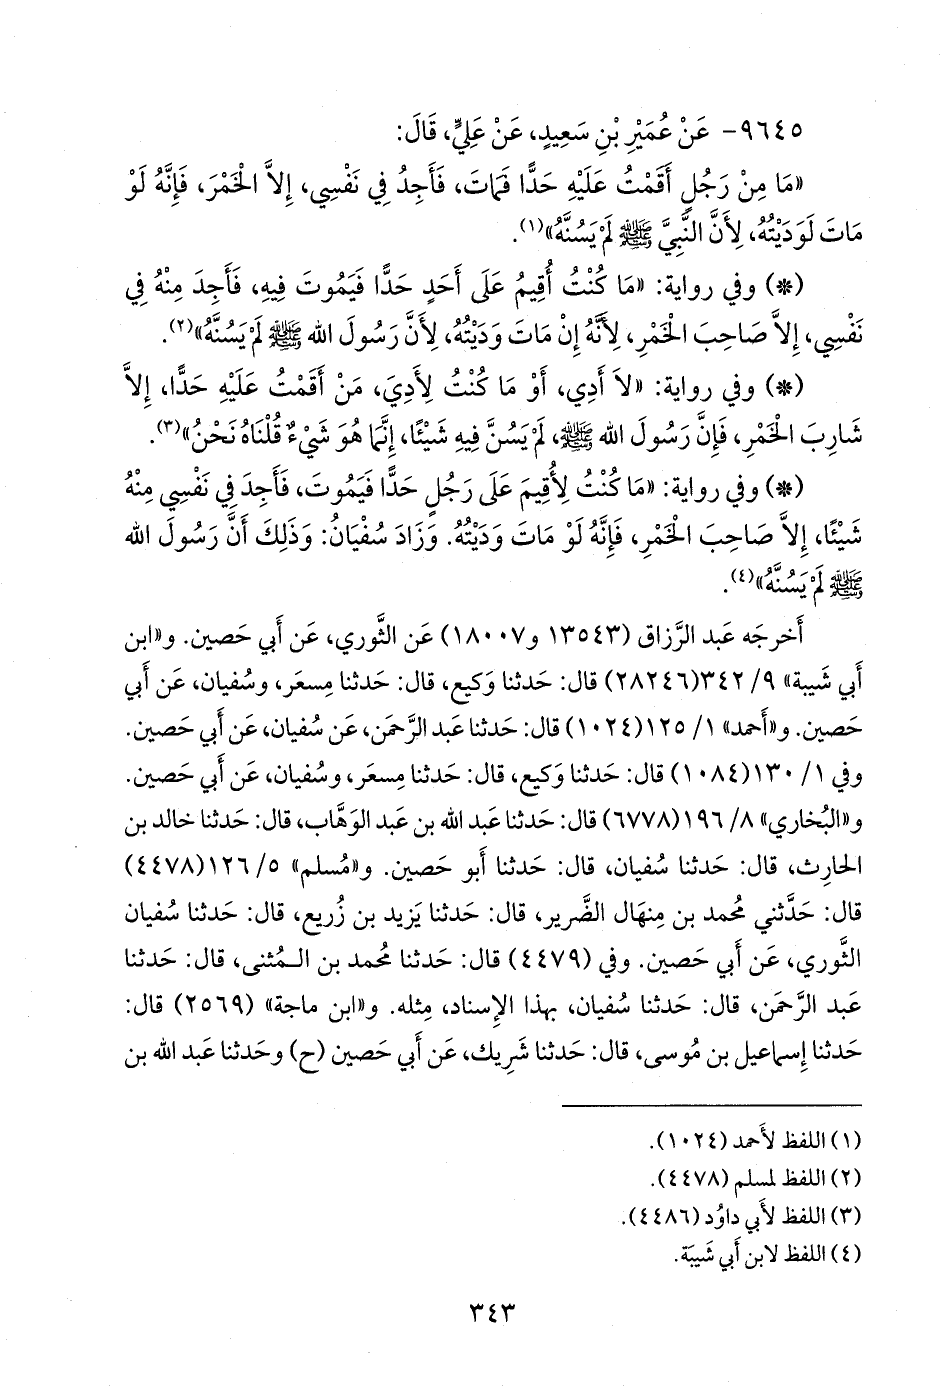 ٩٦٤٥- عَنْ عُمَيْرِ بْنِ سَعِيدٍ، عَنْ عَلِيٍّ، قَالَ:
«مَا مِنْ رَجُلٍ أَقَمْتُ عَلَيْهِ حَدًّا فَمَاتَ، فَأَجِدُ فِي نَفْسِي، إِلاَّ الْخَمْرَ، فَإِنَّهُ لَوْ
مَاتَ لَوَدَيْتُهُ، لِأَنَّ النَّبِيَّ ﷺ لَمْ يَسُنَّهُ»(١).
(*) وفي رواية: «مَا كُنْتُ أُقِيمُ عَلَى أَحَدٍ حَدًّا فَيَمُوتَ فِيهِ، فَأَجِدَ مِنْهُ فِي
نَفْسِي، إِلاَّ صَاحِبَ الْخَمْرِ، لِأَنَّهُ إِنْ مَاتَ وَدَيْتُهُ، لِأَنَّ رَسُولَ الله ﷺ لَمْ يَسُنَّهُ»(٢).
(*) وفي رواية: «لاَ أَدِي، أَوْ مَا كُنْتُ لِأَدِيَ، مَنْ أَقَمْتُ عَلَيْهِ حَدًّا، إِلاَّ
شَارِبَ الْخَمْرِ، فَإِنَّ رَسُولَ الله ﷺ، لَمْ يَسُنَّ فِيهِ شَيْئًا، إِنَّمَا هُوَ شَيْءٌ قُلْنَاهُ نَحْنُ»(٣).
(*) وفي رواية: «مَا كُنْتُ لِأُقِيمَ عَلَى رَجُلٍ حَدًّا فَيَمُوتَ، فَأَجِدَ فِي نَفْسِي مِنْهُ
شَيْئًا، إِلاَّ صَاحِبَ الْخَمْرِ، فَإِنَّهُ لَوْ مَاتَ وَدَيْتُهُ. وَزَادَ سُفْيَانُ: وَذَلِكَ أَنَّ رَسُولَ الله
ﷺ لَمْ يَسُنَّهُ»(٤).
أَخرجَه عَبد الرَّزاق (١٣٥٤٣ و١٨٠٠٧) عَن الثَّوري، عَن أَبي حَصين. و«ابن
أَبي شَيبة» ٩/ ٣٤٢(٢٨٢٤٦) قال: حَدثنا وَكيع، قال: حَدثنا مِسعَر، وسُفيان، عَن أَبي
حَصين. و«أَحمد» ١/ ١٢٥(١٠٢٤) قال: حَدثنا عَبد الرَّحمَن، عَن سُفيان، عَن أَبي حَصين.
وفي ١/ ١٣٠(١٠٨٤) قال: حَدثنا وَكيع، قال: حَدثنا مِسعَر، وسُفيان، عَن أَبي حَصين.
و«البُخاري» ٨/ ١٩٦(٦٧٧٨) قال: حَدثنا عَبد الله بن عَبد الوَهَّاب، قال: حَدثنا خالد بن
الحارِث، قال: حَدثنا سُفيان، قال: حَدثنا أَبو حَصين. و«مُسلم» ٥/ ١٢٦(٤٤٧٨)
قال: حَدَّثني مُحمد بن مِنهال الضَّرير، قال: حَدثنا يَزيد بن زُريع، قال: حَدثنا سُفيان
الثَّوري، عَن أَبي حَصين. وفي (٤٤٧٩) قال: حَدثنا مُحمد بن الـمُثنى، قال: حَدثنا
عَبد الرَّحمَن، قال: حَدثنا سُفيان، بهذا الإِسناد، مِثله. و«ابن ماجة» (٢٥٦٩) قال:
حَدثنا إِسماعيل بن مُوسى، قال: حَدثنا شَريك، عَن أَبي حَصين (ح) وحَدثنا عَبد الله بن
(١) اللفظ لأَحمد (١٠٢٤).
(٢) اللفظ لمسلم (٤٤٧٨).
(٣) اللفظ لأَبي داوُد (٤٤٨٦).
(٤) اللفظ لابن أَبي شَيبَة.
٣٤٣